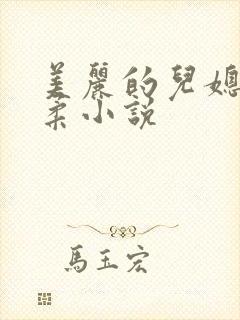 美麗的兒媳
柔小説
馬玉宏